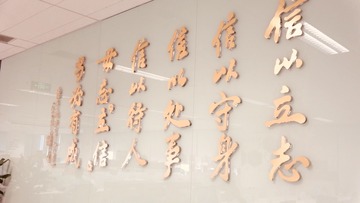 信以立志
信以守身
信以处事
信以待人
毋忘立信
当必有成